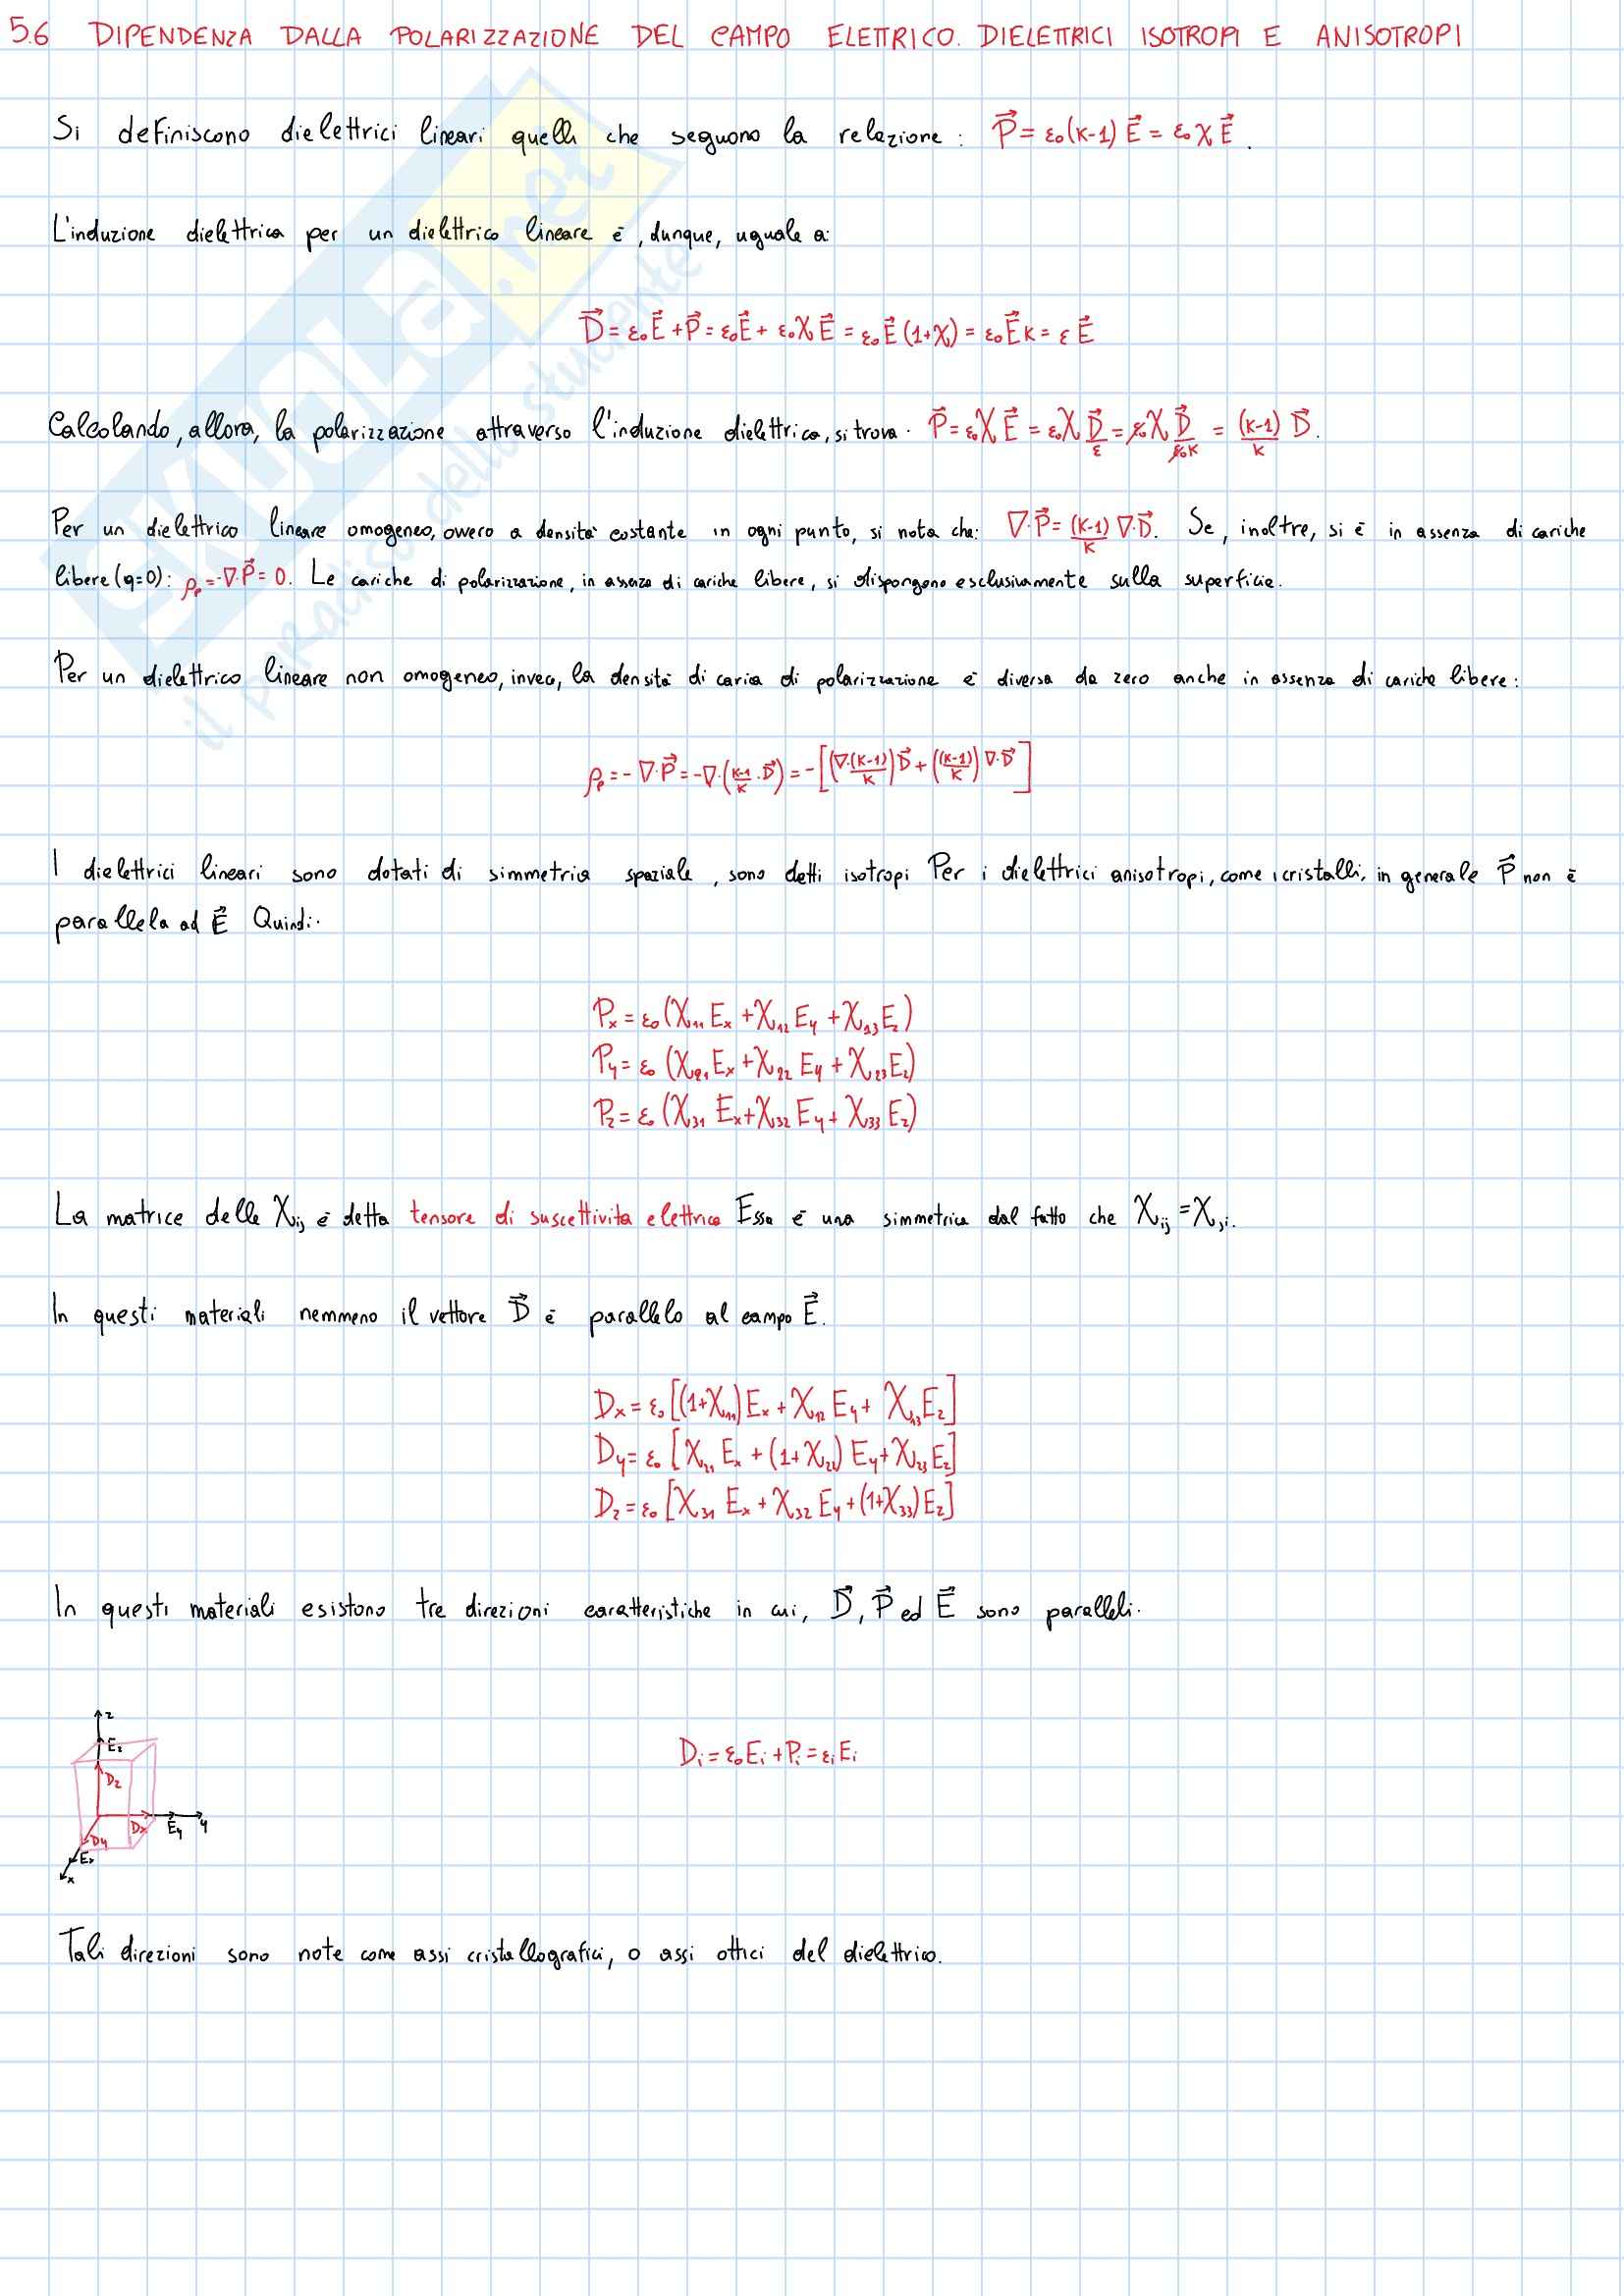 5.6 DIPENDENZA DALLA POLARIZZAZIONE DEL CAMPO ELETTRICO. DIELETTRICI ISOTROPI E ANISOTROPI
Si definiscono dielettrici lineari quelli che seguono la relazione: P⃗ = ε₀(κ-1) E⃗ = ε₀ χ E⃗.
L'induzione dielettrica per un dielettrico lineare è, dunque, uguale a:
D⃗ = ε₀E⃗ + P⃗ = ε₀E⃗ + ε₀χE⃗ = ε₀E⃗(1+χ) = ε₀E⃗κ = εE⃗
Calcolando, allora, la polarizzazione attraverso l'induzione dielettrica, si trova: P⃗ = ε₀χE⃗ = ε₀χ D⃗/ε = ε₀χ D⃗/ε₀κ = (κ-1)/κ D⃗.
Per un dielettrico lineare omogeneo, ovvero a densità costante in ogni punto, si nota che: ∇·P⃗ = (κ-1)/κ ∇·D⃗. Se, inoltre, si è in assenza di cariche
libere (q=0): ρₚ = -∇·P⃗ = 0. Le cariche di polarizzazione, in assenza di cariche libere, si dispongono esclusivamente sulla superficie.
Per un dielettrico lineare non omogeneo, invece, la densità di carica di polarizzazione è diversa da zero anche in assenza di cariche libere:
ρₚ = -∇·P⃗ = -∇·(κ-1/κ · D⃗) = -[(∇·(κ-1)/κ)D⃗ + ((κ-1)/κ)∇·D⃗]
I dielettrici lineari sono dotati di simmetria spaziale, sono detti isotropi Per i dielettrici anisotropi, come i cristalli, in generale P⃗ non è
parallela ad E⃗ Quindi:
Pₓ = ε₀(χ₁₁Eₓ + χ₁₂E_y + χ₁₃E_z)
P_y = ε₀(χ₂₁Eₓ + χ₂₂E_y + χ₂₃E_z)
P_z = ε₀(χ₃₁Eₓ + χ₃₂E_y + χ₃₃E_z)
La matrice delle χᵢⱼ è detta tensore di suscettività elettrica Essa è una simmetrica dal fatto che χᵢⱼ = χⱼᵢ.
In questi materiali nemmeno il vettore D⃗ è parallelo al campo E⃗.
Dₓ = ε₀[(1+χ₁₁)Eₓ + χ₁₂E_y + χ₁₃E_z]
D_y = ε₀[χ₂₁Eₓ + (1+χ₂₂)E_y + χ₂₃E_z]
D_z = ε₀[χ₃₁Eₓ + χ₃₂E_y + (1+χ₃₃)E_z]
In questi materiali esistono tre direzioni caratteristiche in cui, D⃗, P⃗ ed E⃗ sono paralleli.
z
E_z
D_z
Dᵢ = ε₀Eᵢ + Pᵢ = εᵢEᵢ
Dₓ E_y y
D_y
Eₓ
x
Tali direzioni sono note come assi cristallografici, o assi ottici del dielettrico.
skuola.net
il paradiso dello studente